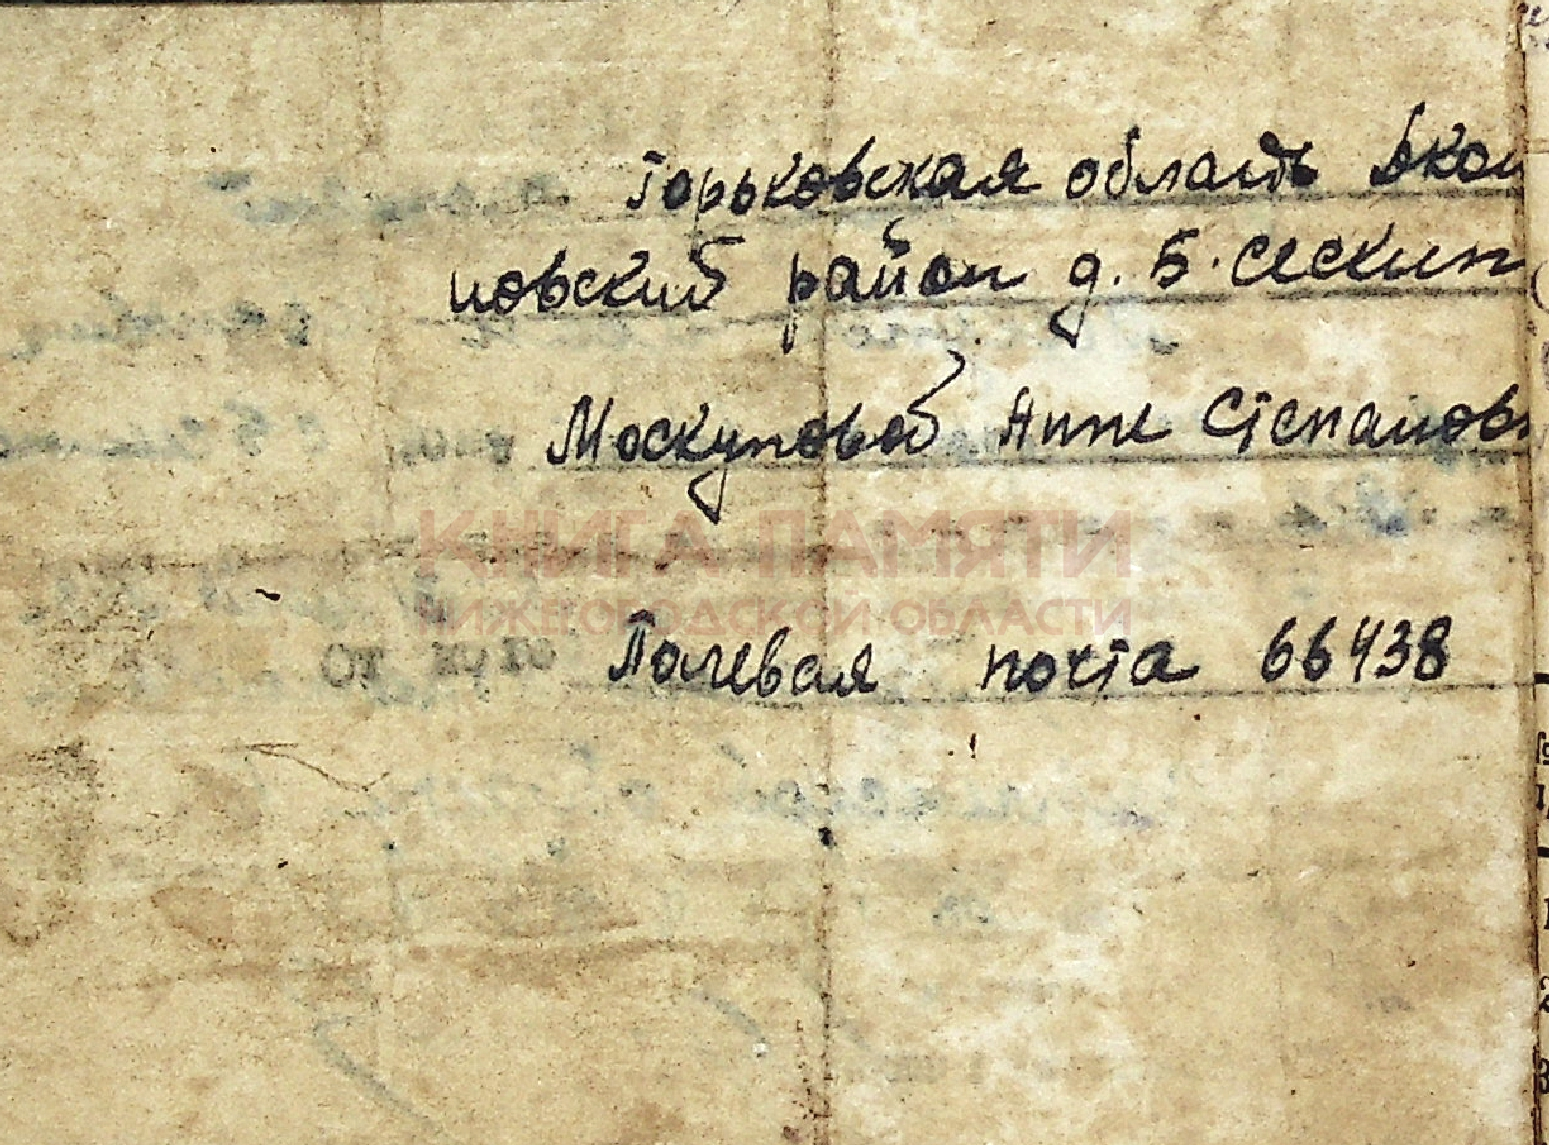 Горьковская область Вкаш
иовский район д. Б. Сескин
Москуновой Анне Степанов
КНИГА ПАМЯТИ
НИЖЕГОРОДСКОЙ ОБЛАСТИ
От кого Полевая почта 66438